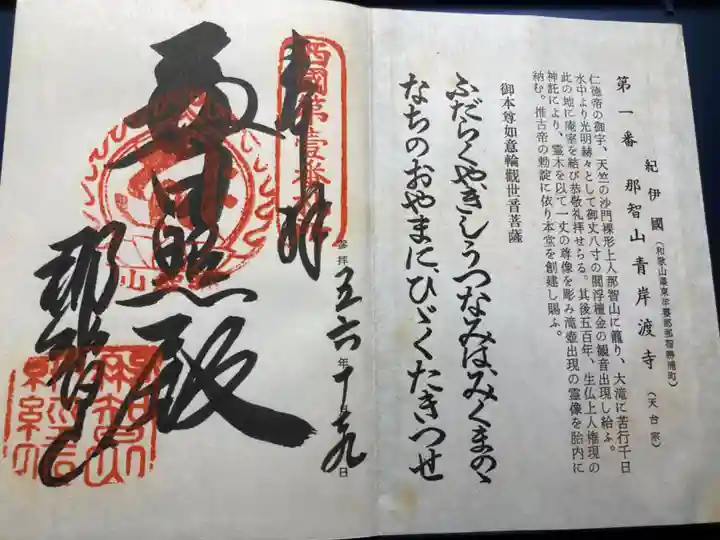 第一番　紀伊國（和歌山縣東牟婁郡那智勝浦町）
那智山青岸渡寺（天台宗）
仁徳帝の御宇、天竺の沙門裸形上人那智山に籠り、大滝に苦行千日
水中より光明赫々として御丈八寸の閻浮檀金の観音出現し給ふ。
此の地に庵室を結び恭敬礼拝せらる。其後五百年、生仏上人権現の
神託により、霊木を以て一丈の尊像を彫み滝壺出現の霊像を胎内に
納む。推古帝の勅諚に依り本堂を創建し賜ふ。
御本尊如意輪觀世音菩薩
ふだらくや、きしうつなみは、みくまのゝ
なちのおやまに、ひゞくたきつせ
奉拝
西國第壹番
参拝五六年十月九日
日照殿
那智山